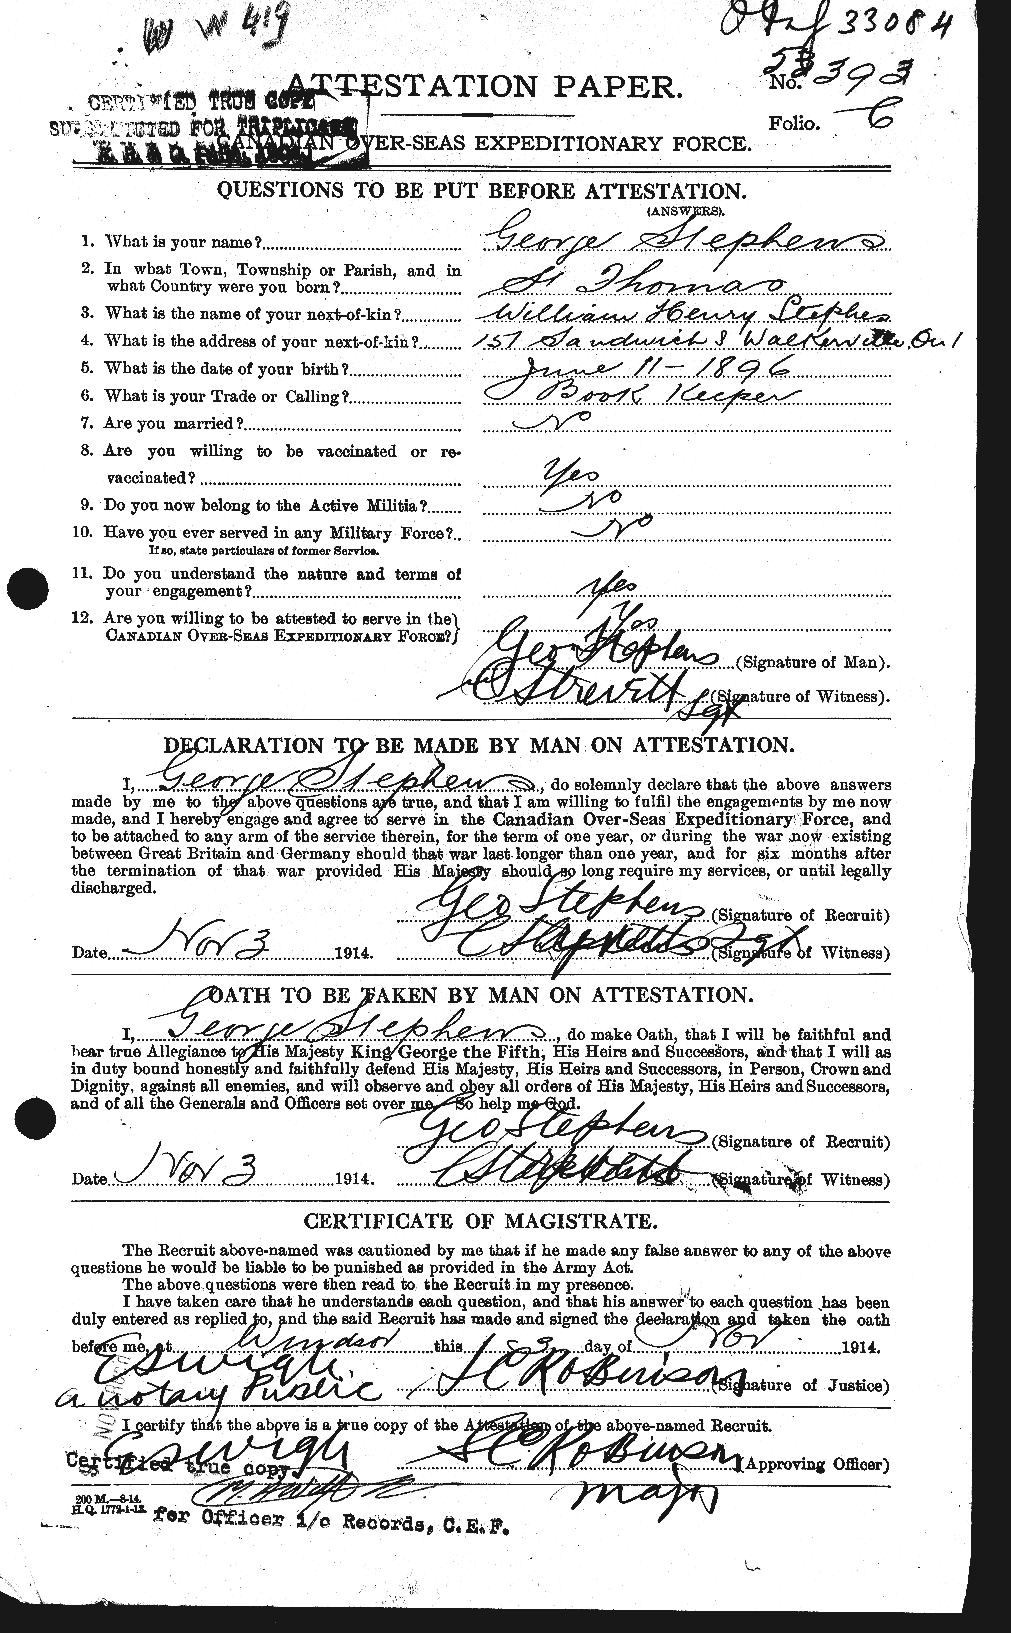 W W 419
33084
No. 53393
Folio. 6
ATTESTATION PAPER.
CERTIFIED TRUE COPY
SUBMITTED FOR TRIPLICATE
CANADIAN OVER-SEAS EXPEDITIONARY FORCE.
QUESTIONS TO BE PUT BEFORE ATTESTATION.
(ANSWERS).
1. What is your name? George Stephens
2. In what Town, Township or Parish, and in
what Country were you born? St Thomas
3. What is the name of your next-of-kin? William Henry Stephes
4. What is the address of your next-of-kin? 151 Sandwich S Walkerville, Ont
5. What is the date of your birth? June 11-1896
6. What is your Trade or Calling? Book Keeper
7. Are you married? No
8. Are you willing to be vaccinated or re-
vaccinated? Yes
9. Do you now belong to the Active Militia? No
10. Have you ever served in any Military Force? No
If so, state particulars of former Service.
11. Do you understand the nature and terms of
your engagement? Yes
12. Are you willing to be attested to serve in the} Yes
CANADIAN OVER-SEAS EXPEDITIONARY FORCE?}
Geo Stephens (Signature of Man).
C Strevitt Sgt (Signature of Witness).
DECLARATION TO BE MADE BY MAN ON ATTESTATION.
I, George Stephens, do solemnly declare that the above answers
made by me to the above questions are true, and that I am willing to fulfil the engagements by me now
made, and I hereby engage and agree to serve in the Canadian Over-Seas Expeditionary Force, and
to be attached to any arm of the service therein, for the term of one year, or during the war now existing
between Great Britain and Germany should that war last longer than one year, and for six months after
the termination of that war provided His Majesty should so long require my services, or until legally
discharged.
Geo Stephens (Signature of Recruit)
Date Nov 3 1914. Sgt (Signature of Witness)
OATH TO BE TAKEN BY MAN ON ATTESTATION.
I, George Stephens, do make Oath, that I will be faithful and
bear true Allegiance to His Majesty King George the Fifth, His Heirs and Successors, and that I will as
in duty bound honestly and faithfully defend His Majesty, His Heirs and Successors, in Person, Crown and
Dignity, against all enemies, and will observe and obey all orders of His Majesty, His Heirs and Successors,
and of all the Generals and Officers set over me. So help me God.
Geo Stephens (Signature of Recruit)
Date Nov 3 1914. (Signature of Witness)
CERTIFICATE OF MAGISTRATE.
The Recruit above-named was cautioned by me that if he made any false answer to any of the above
questions he would be liable to be punished as provided in the Army Act.
The above questions were then read to the Recruit in my presence.
I have taken care that he understands each question, and that his answer to each question has been
duly entered as replied to, and the said Recruit has made and signed the declaration and taken the oath
before me, at Windsor this 3 day of Nov 1914.
E S Wigle
a notary Public S C Robinson (Signature of Justice)
I certify that the above is a true copy of the Attestation of the above-named Recruit.
E S Wigle S C Robinson (Approving Officer)
Certified true copy.
Major
200 M.—8-14.
H.Q. 1772-1-13.
for Officer i/c Records, C.E.F.